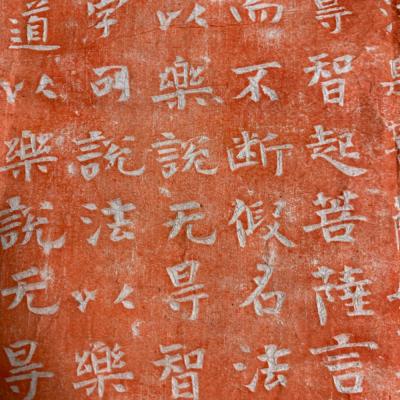 㝵智起菩薩言
而不断假名法
以樂說无㝵智
可說法以樂
道以樂說无㝵